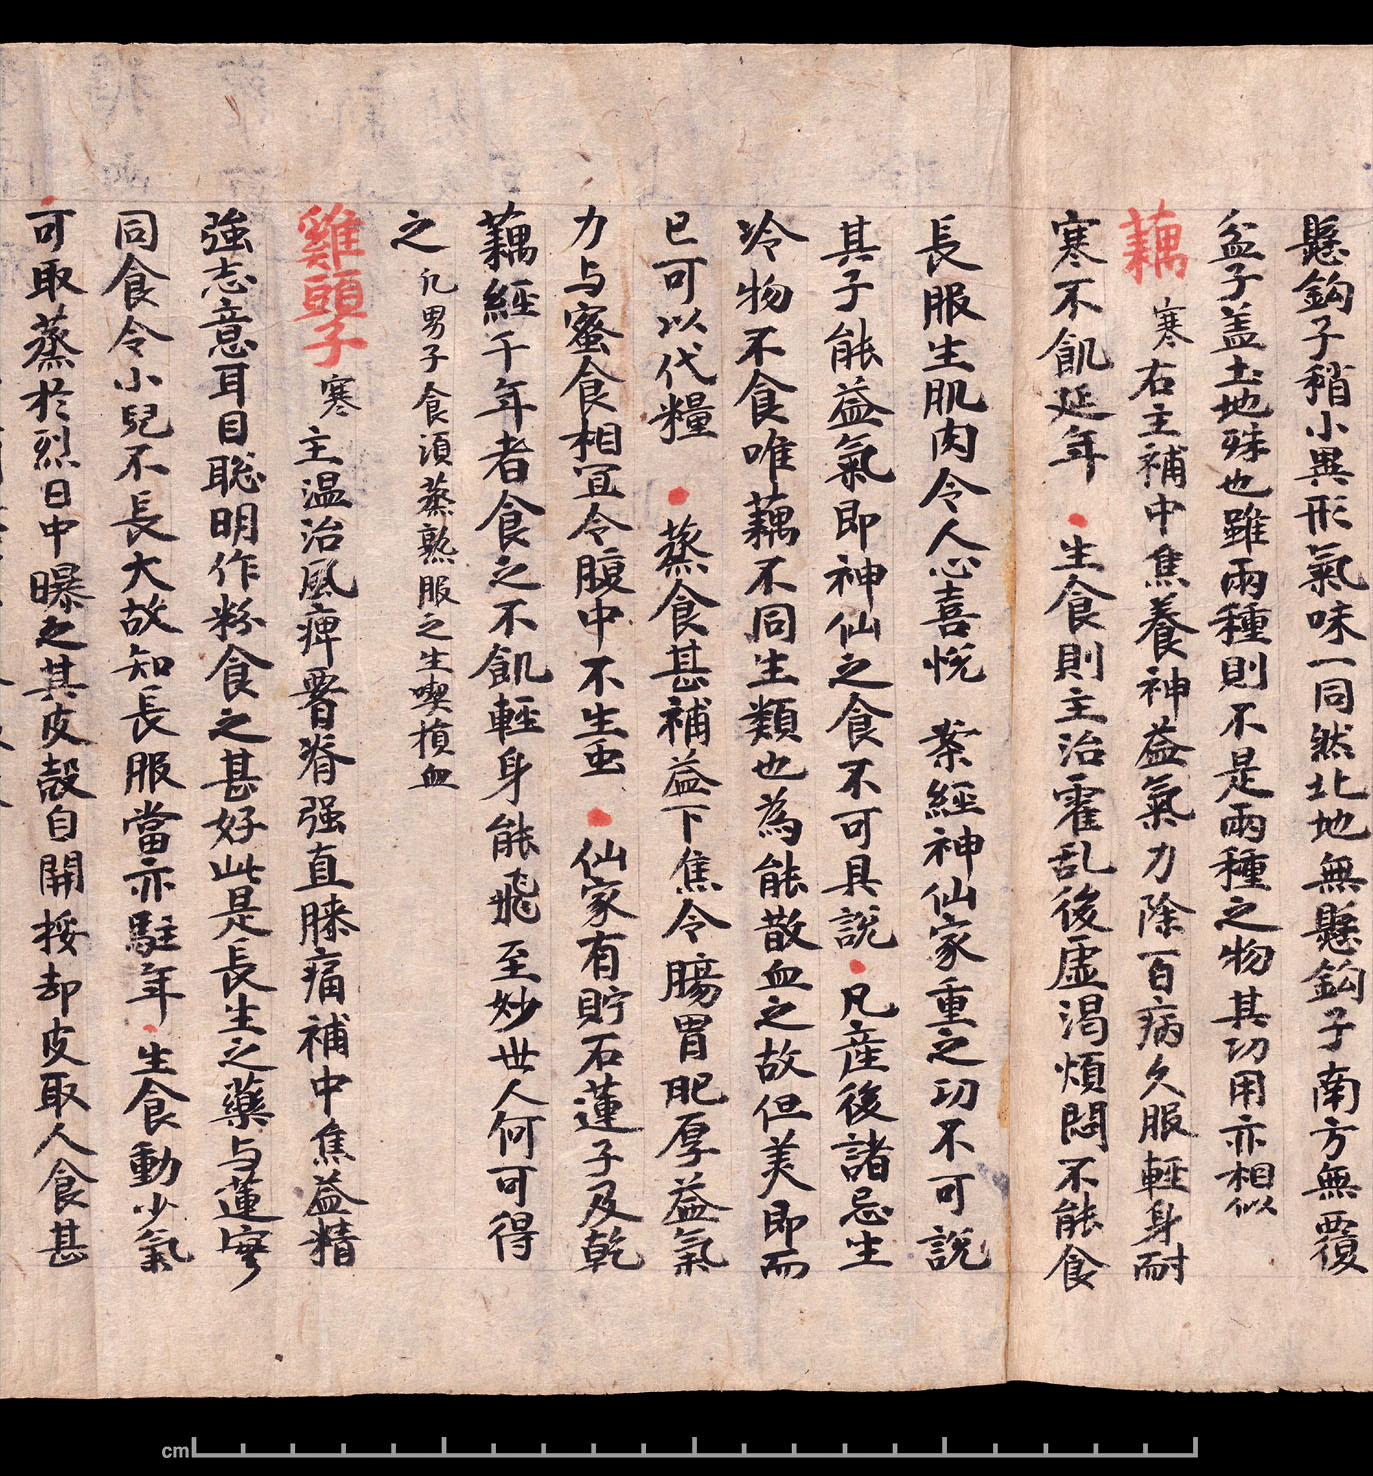 懸鈎子稍小異形氣味一同然北地無懸鈎子南方無覆
盆子盖土地殊也雖兩種則不是兩種之物其功用亦相似
藕 寒 右主補中焦養神益氣力除百病久服輕身耐
寒不飢延年 ● 生食則主治霍乱後虛渴煩悶不能食
長服生肌肉令人心喜悅 案經神仙家重之功不可說
其子能益氣即神仙之食不可具說 ● 凡産後諸忌生
冷物不食唯藕不同生類也為能散血之故但美即而
已可以代糧 ● 蒸食甚補益下焦令腸胃肥厚益氣
力与蜜食相宜令腹中不生虫 ● 仙家有貯石蓮子及乾
藕經千年者食之不飢輕身能飛至妙世人何可得
之 凡男子食湏蒸熟服之生喫損血
雞頭子 寒 主温治風痺署脊强直膝痛補中焦益精
強志意耳目聡明作粉食之甚好此是長生之藥与蓮寔
同食令小兒不長大故知長服當亦駐年 ● 生食動少氣
可取蒸於烈日中曝之其皮殼自開挼却皮取人食甚